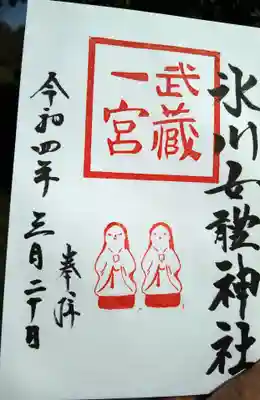 氷川女體神社
武蔵
一宮
奉拝
令和四年三月二十日